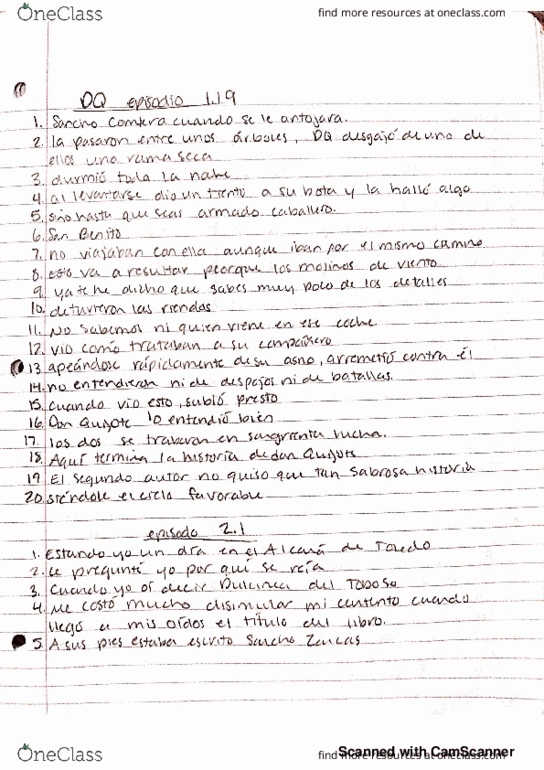 OneClass
find more resources at oneclass.com
DQ episodio 1.19
1. Sancho comiera cuando se le antojara.
2. la pasaron entre unos árboles, DQ desgajó de uno de
ellos una rama seca
3. durmió toda la noche
4. al levantarse dio un tiento a su bota y la halló algo
5. sino hasta que seas armado caballero.
6. San Benito
7. no viajaban con ella aunque iban por el mismo camino
8. esto va a resultar peor que los molinos de viento
9. ya te he dicho que sabes muy poco de los detalles
10. detuvieron las riendas
11. No sabemos ni quien viene en ese coche
12. vio como trataban a su compañero
13. apeándose rápidamente de su asno, arremetió contra él
14. no entendieron ni de despojos ni de batallas.
15. cuando vio esto, subió presto
16. Don Quijote lo entendió bien
17. los dos se trabaron en sangrienta lucha.
18. Aquí termina la historia de don Quijote
19. El segundo autor no quiso que tan sabrosa historia
20. siéndole el cielo favorable
episodo 2.1
1. Estando yo un día en el Alcaná de Toledo
2. Le pregunté yo por qué se reía
3. Cuando yo oí decir Dulcinea del Toboso
4. Me costó mucho disimular mi contento cuando
llegó a mis oídos el título del libro.
5. A sus pies estaba escrito Sancho Zancas
OneClass
find more resources at oneclass.com
Scanned with CamScanner